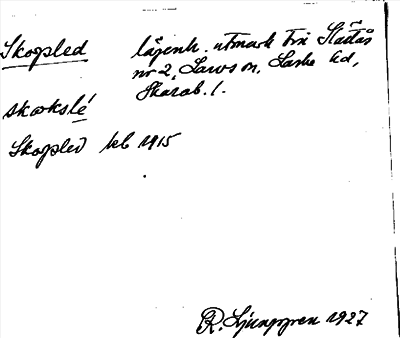 Skogsled lägenh. utmark t. Slätås
nr 2, Larvs sn, Laske hd,
Skarab. l.
skɷksle´
Skogsled kb 1915
R. Ljunggren 1927